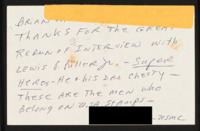 BRIAN
THANKS FOR THE GREAT
RERUN OF INTERVIEW WITH
LEWIS B. PULLER JR. - SUPER
HERO - HE & HIS DAD CHESTY -
THESE ARE THE MEN WHO
BELONG ON U.S. STAMPS -
USMC